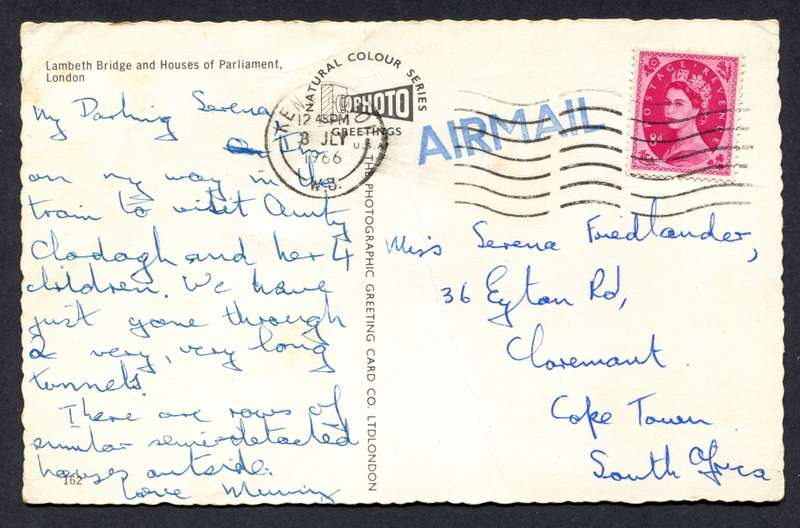 Lambeth Bridge and Houses of Parliament,
London
My Darling Serena
I'm
on my way in the
train to visit Aunty
Clodagh and her 4
children. We have
just gone through
2 very, very long
tunnels.
There are rows of
similar semi-detached
houses outside.
love
162
NATURAL COLOUR SERIES
PHOTO
GREETINGS
U.S.A.
KEN
12 45PM
8 JLY
1966
W.8.
THE PHOTOGRAPHIC GREETING CARD CO. LTD LONDON
AIRMAIL
POSTAGE REVENUE
8d
Miss Serena Friedlander,
36 Eyton Rd,
Claremont
Cape Town
South Africa